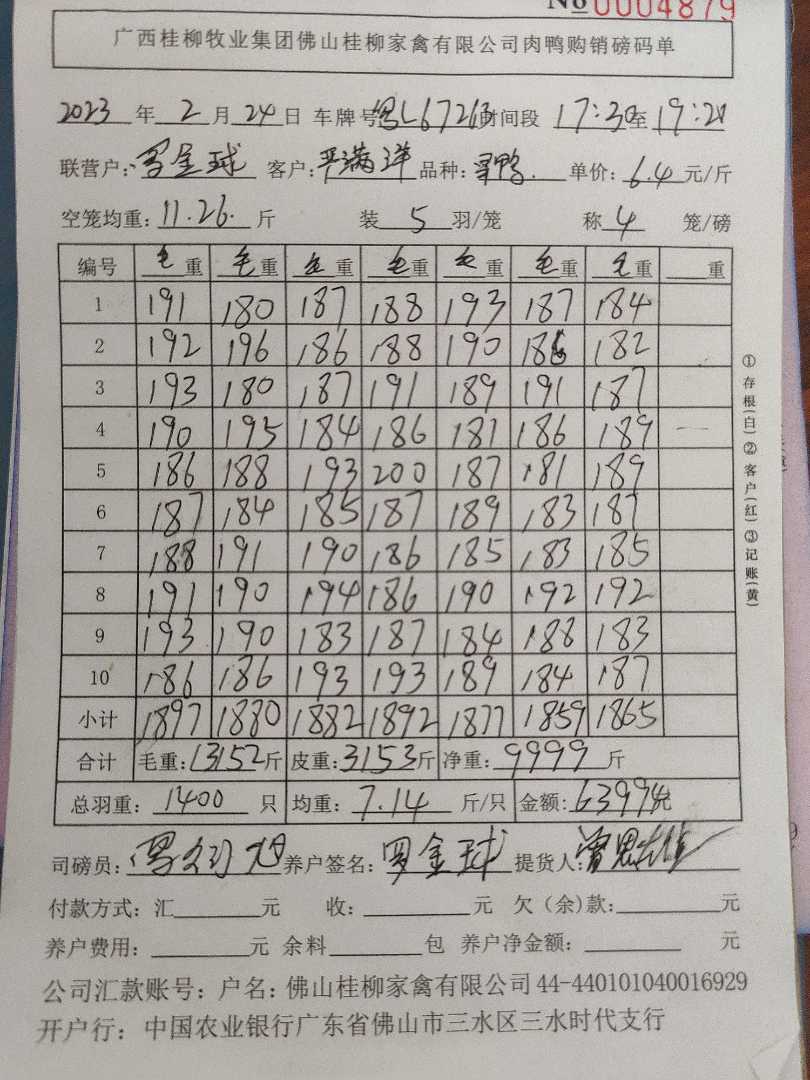 No 0004879
广西桂柳牧业集团佛山桂柳家禽有限公司肉鸭购销磅码单
2023 年 2 月 24 日 车牌号 粤L6726 时间段 17:30 至 19:20
联营户: 罗金球 客户: 严满洋 品种: 鸭. 单价: 6.4 元/斤
空笼均重: 11.26. 斤 装 5 羽/笼 称 4 笼/磅
编号 毛重 毛重 毛重 毛重 毛重 毛重 毛重 重
1 191 180 187 188 193 187 184
2 192 196 186 188 190 186 182
3 193 180 187 191 189 191 187
4 190 195 184 186 181 186 189
5 186 188 193 200 187 181 189
6 187 184 185 187 189 183 187
7 188 191 190 186 185 183 185
8 191 190 194 186 190 192 192
9 193 190 183 187 184 188 183
10 186 186 193 193 189 184 187
小计 1897 1880 1882 1892 1877 1859 1865
合计 毛重: 13152 斤 皮重: 3153 斤 净重: 9999 斤
总羽重: 1400 只 均重: 7.14 斤/只 金额: 63994 元
司磅员: 养户签名: 罗金球 提货人:
付款方式: 汇 元 收: 元 欠(余)款: 元
养户费用: 元 余料 包 养户净金额: 元
公司汇款账号: 户名: 佛山桂柳家禽有限公司 44-440101040016929
开户行: 中国农业银行广东省佛山市三水区三水时代支行
①存根(白)②客户(红)③记账(黄)